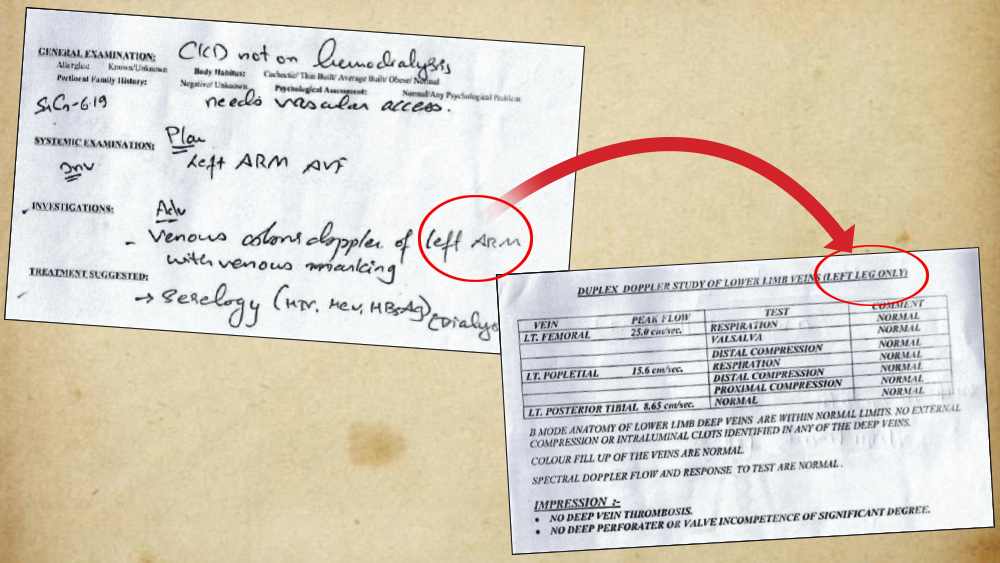 GENERAL EXAMINATION: CKD not on hemodialysis
Allergies: Known/Unknown Body Habitus: Cachectic/ Thin Built/ Average Built/ Obese/ Normal
Pertinent Family History: Negative/ Unknown Psychological Assessment: Normal/Any Psychological Problem
SrCr-6.19 needs vascular access.
Plan
SYSTEMIC EXAMINATION: Left ARM AVF
Inv
INVESTIGATIONS: Adv
- Venous colour doppler of left ARM
with venous marking
TREATMENT SUGGESTED:
→ Serology (HIV, HCV, HBsAg)
DUPLEX DOPPLER STUDY OF LOWER LIMB VEINS (LEFT LEG ONLY)
VEIN PEAK FLOW TEST COMMENT
LT. FEMORAL 25.0 cm/sec. RESPIRATION NORMAL
VALSALVA NORMAL
DISTAL COMPRESSION NORMAL
LT. POPLETIAL 15.6 cm/sec. RESPIRATION NORMAL
DISTAL COMPRESSION NORMAL
PROXIMAL COMPRESSION NORMAL
LT. POSTERIOR TIBIAL 8.65 cm/sec. NORMAL
B MODE ANATOMY OF LOWER LIMB DEEP VEINS ARE WITHIN NORMAL LIMITS. NO EXTERNAL
COMPRESSION OR INTRALUMINAL CLOTS IDENTIFIED IN ANY OF THE DEEP VEINS.
COLOUR FILL UP OF THE VEINS ARE NORMAL.
SPECTRAL DOPPLER FLOW AND RESPONSE TO TEST ARE NORMAL.
IMPRESSION :-
• NO DEEP VEIN THROMBOSIS.
• NO DEEP PERFORATER OR VALVE INCOMPETENCE OF SIGNIFICANT DEGREE.